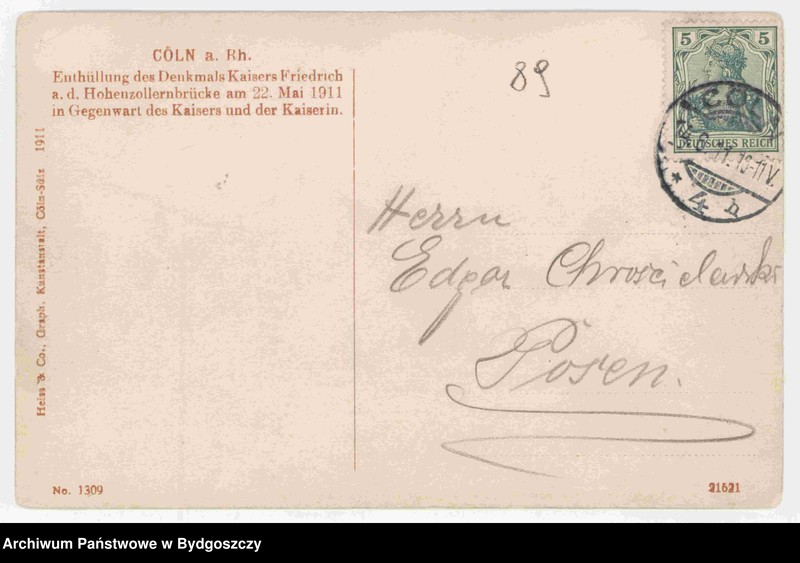 CÖLN a. Rh.
Enthüllung des Denkmals Kaisers Friedrich
a. d. Hohenzollernbrücke am 22. Mai 1911
in Gegenwart des Kaisers und der Kaiserin.
Heiss & Co., Graph. Kunstanstalt, Cöln-Sülz 1911
89
5 5
DEUTSCHES REICH
CÖLN
10-11V.
* 4 h
Herrn
Edgar Chrościelewski
Posen.
No. 1309
21521
Archiwum Państwowe w Bydgoszczy